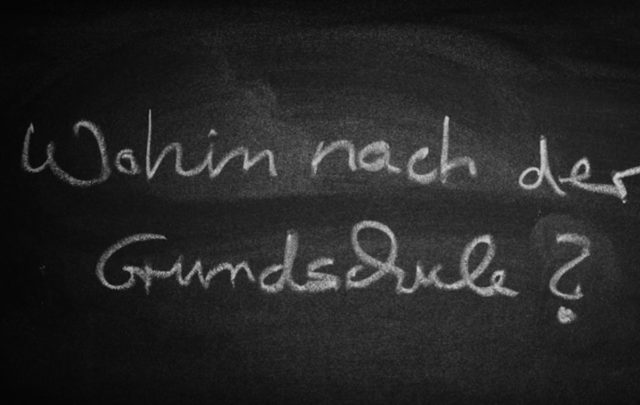 Wohin nach der
Grundschule?